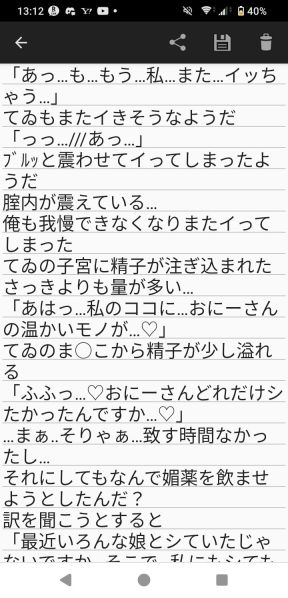 13:12
40%
「あっ…も…もう…私…また…イッち
ゃう…」
てゐもまたイきそうなようだ
「っっ…///あっ…」
ﾌﾞﾙﾙｯと震わせてイってしまったよ
うだ
膣内が震えている…
俺も我慢できなくなりまたイって
しまった
てゐの子宮に精子が注ぎ込まれた
さっきよりも量が多い…
「あはっ…私のココに…おにーさん
の温かいモノが…♡」
てゐのま○こから精子が少し溢れ
る
「ふふっ…♡おにーさんどれだけシ
たかったんですか…♡」
…まぁ..そりゃぁ…致す時間なかっ
たし…
それにしてもなんで媚薬を飲ませ
ようとしたんだ？
訳を聞こうとすると
「最近いろんな娘とシていたじゃ